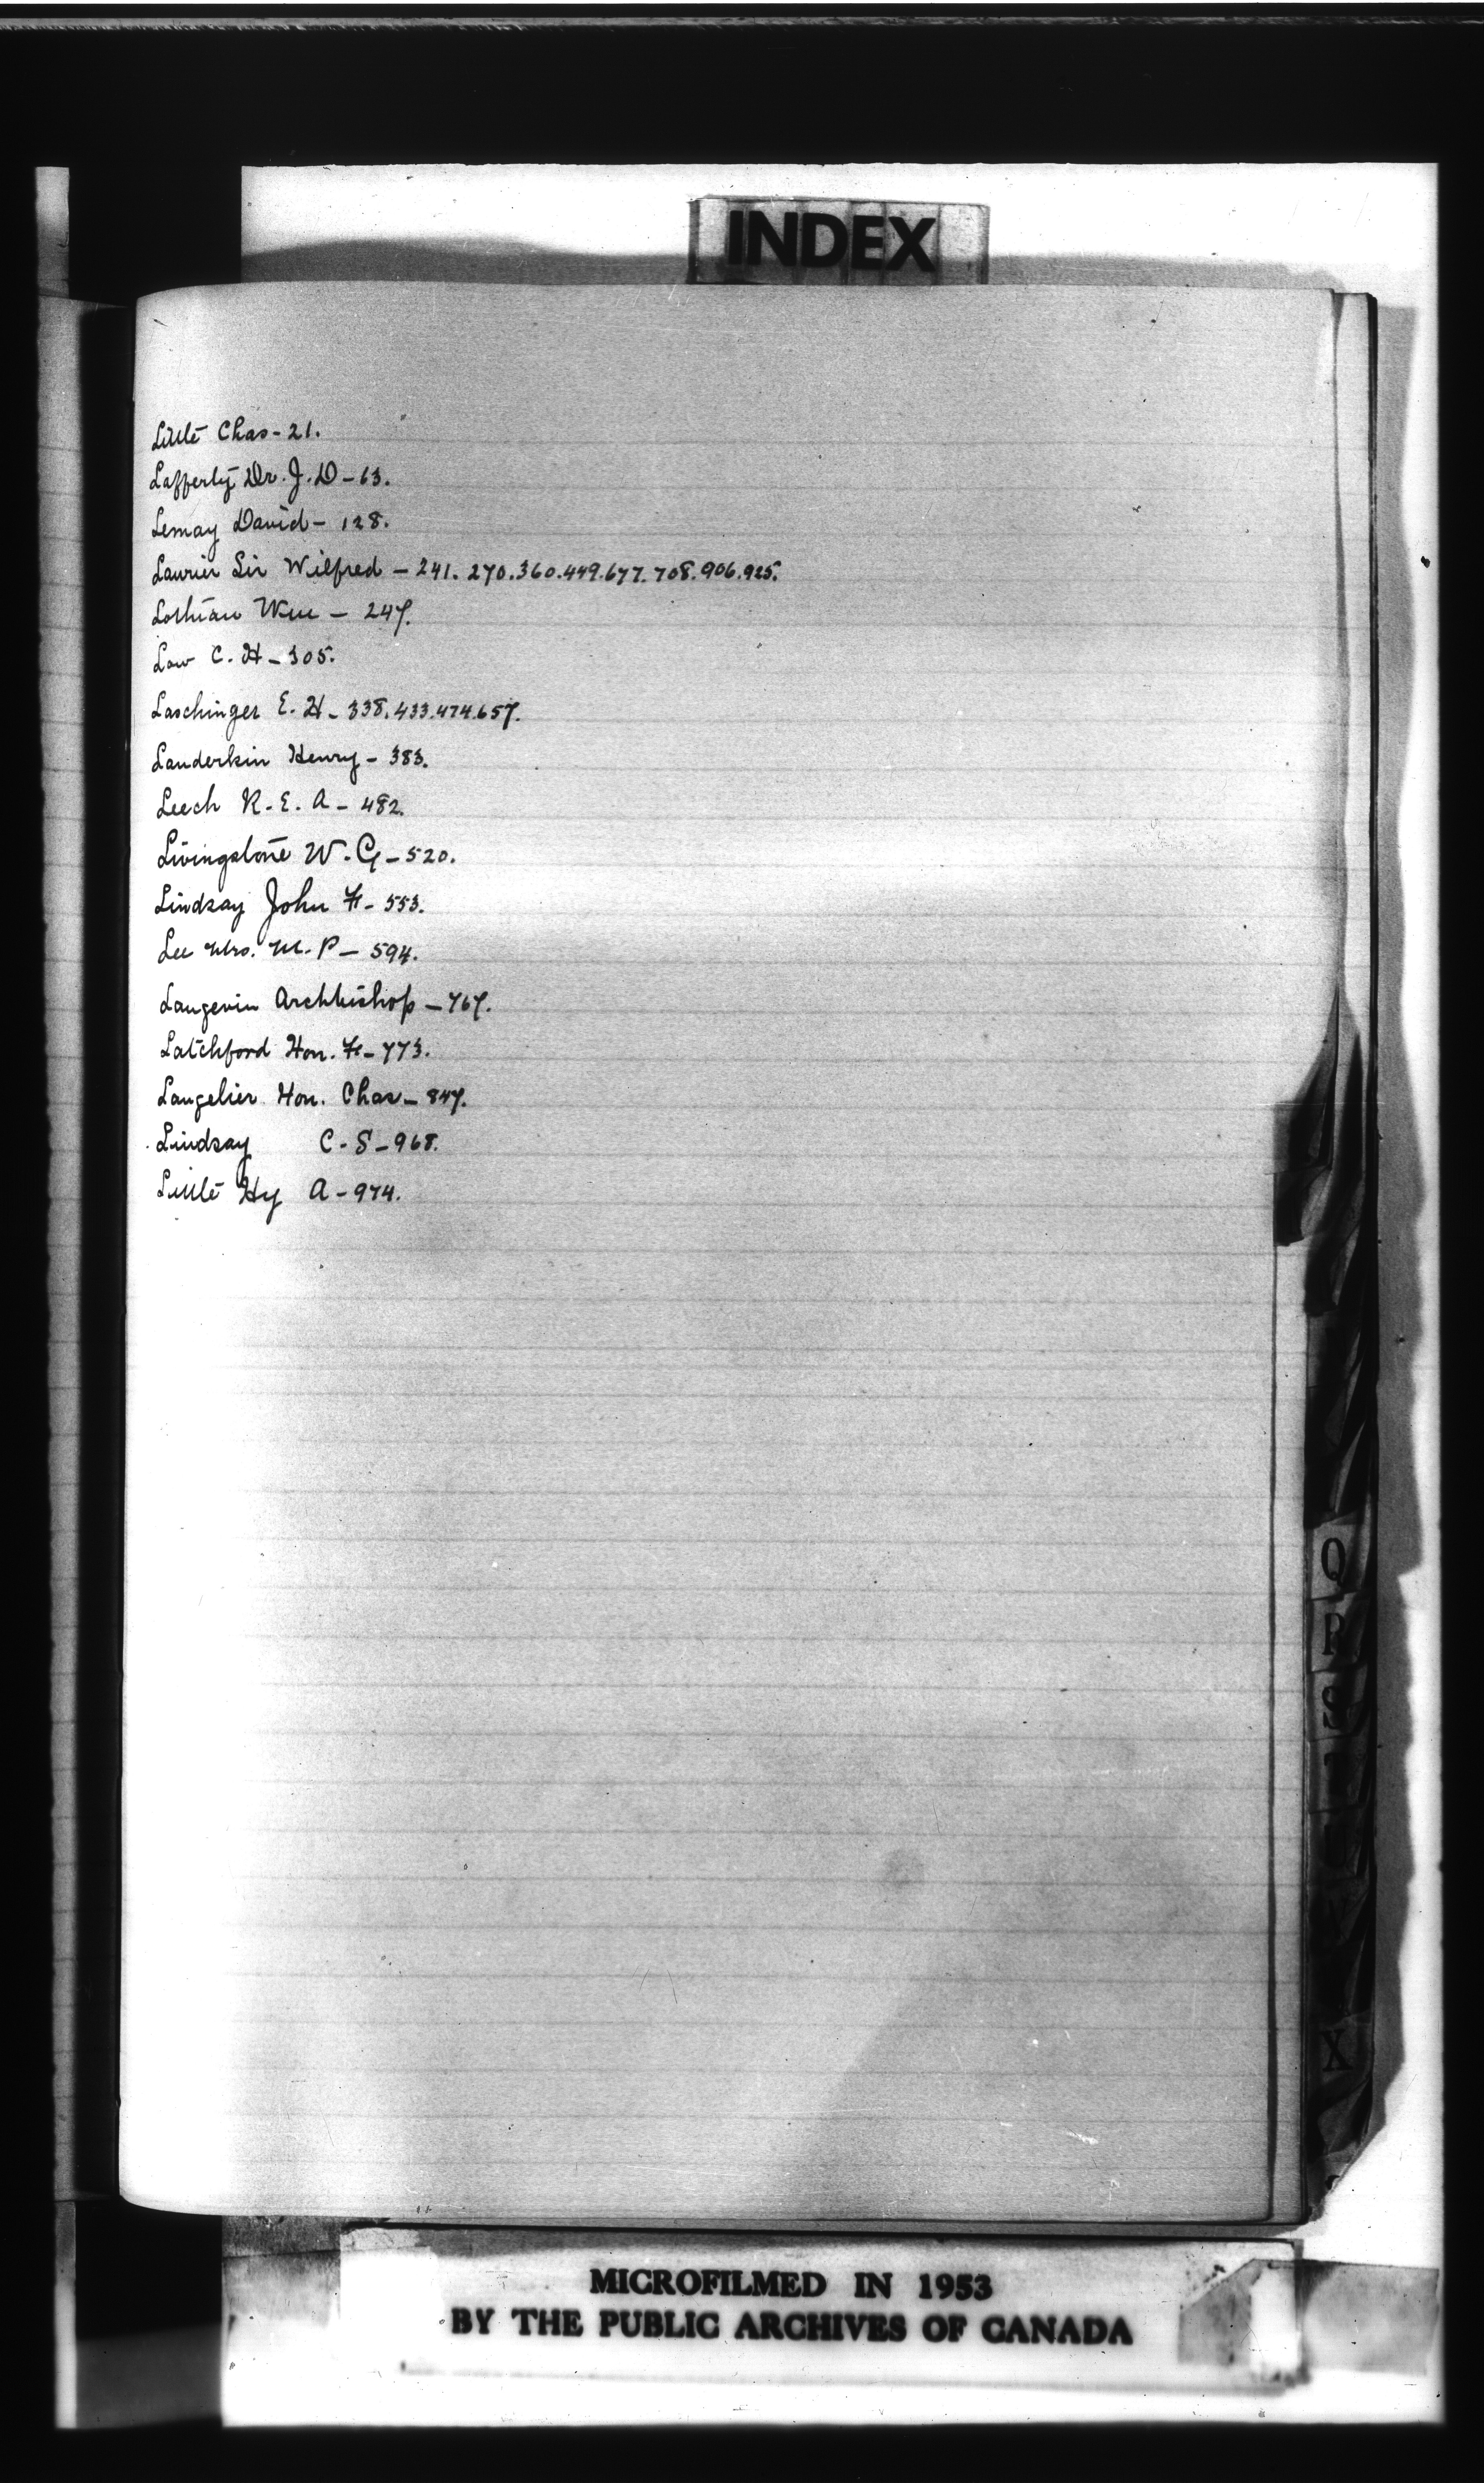 INDEX
Little Chas - 21.
Lafferty Dr. J. D - 63.
Lemay David - 128.
Laurier Sir Wilfred - 241. 270. 360. 449. 677. 708. 906. 925.
Lothian Wm - 247.
Low C. H - 305.
Laschinger E. H - 338. 433. 474. 657.
Landerkin Henry - 383.
Leech R. E. A - 482.
Livingstone W. G - 520.
Lindsay John F - 553.
Lee Mrs. M. P - 594.
Langevin Archbishop - 767.
Latchford Hon. F - 773.
Langelier Hon. Chas - 847.
Lindsay C. S - 968.
Little Hy A - 974.
Q
R
S
T
V
X
MICROFILMED IN 1953
BY THE PUBLIC ARCHIVES OF CANADA